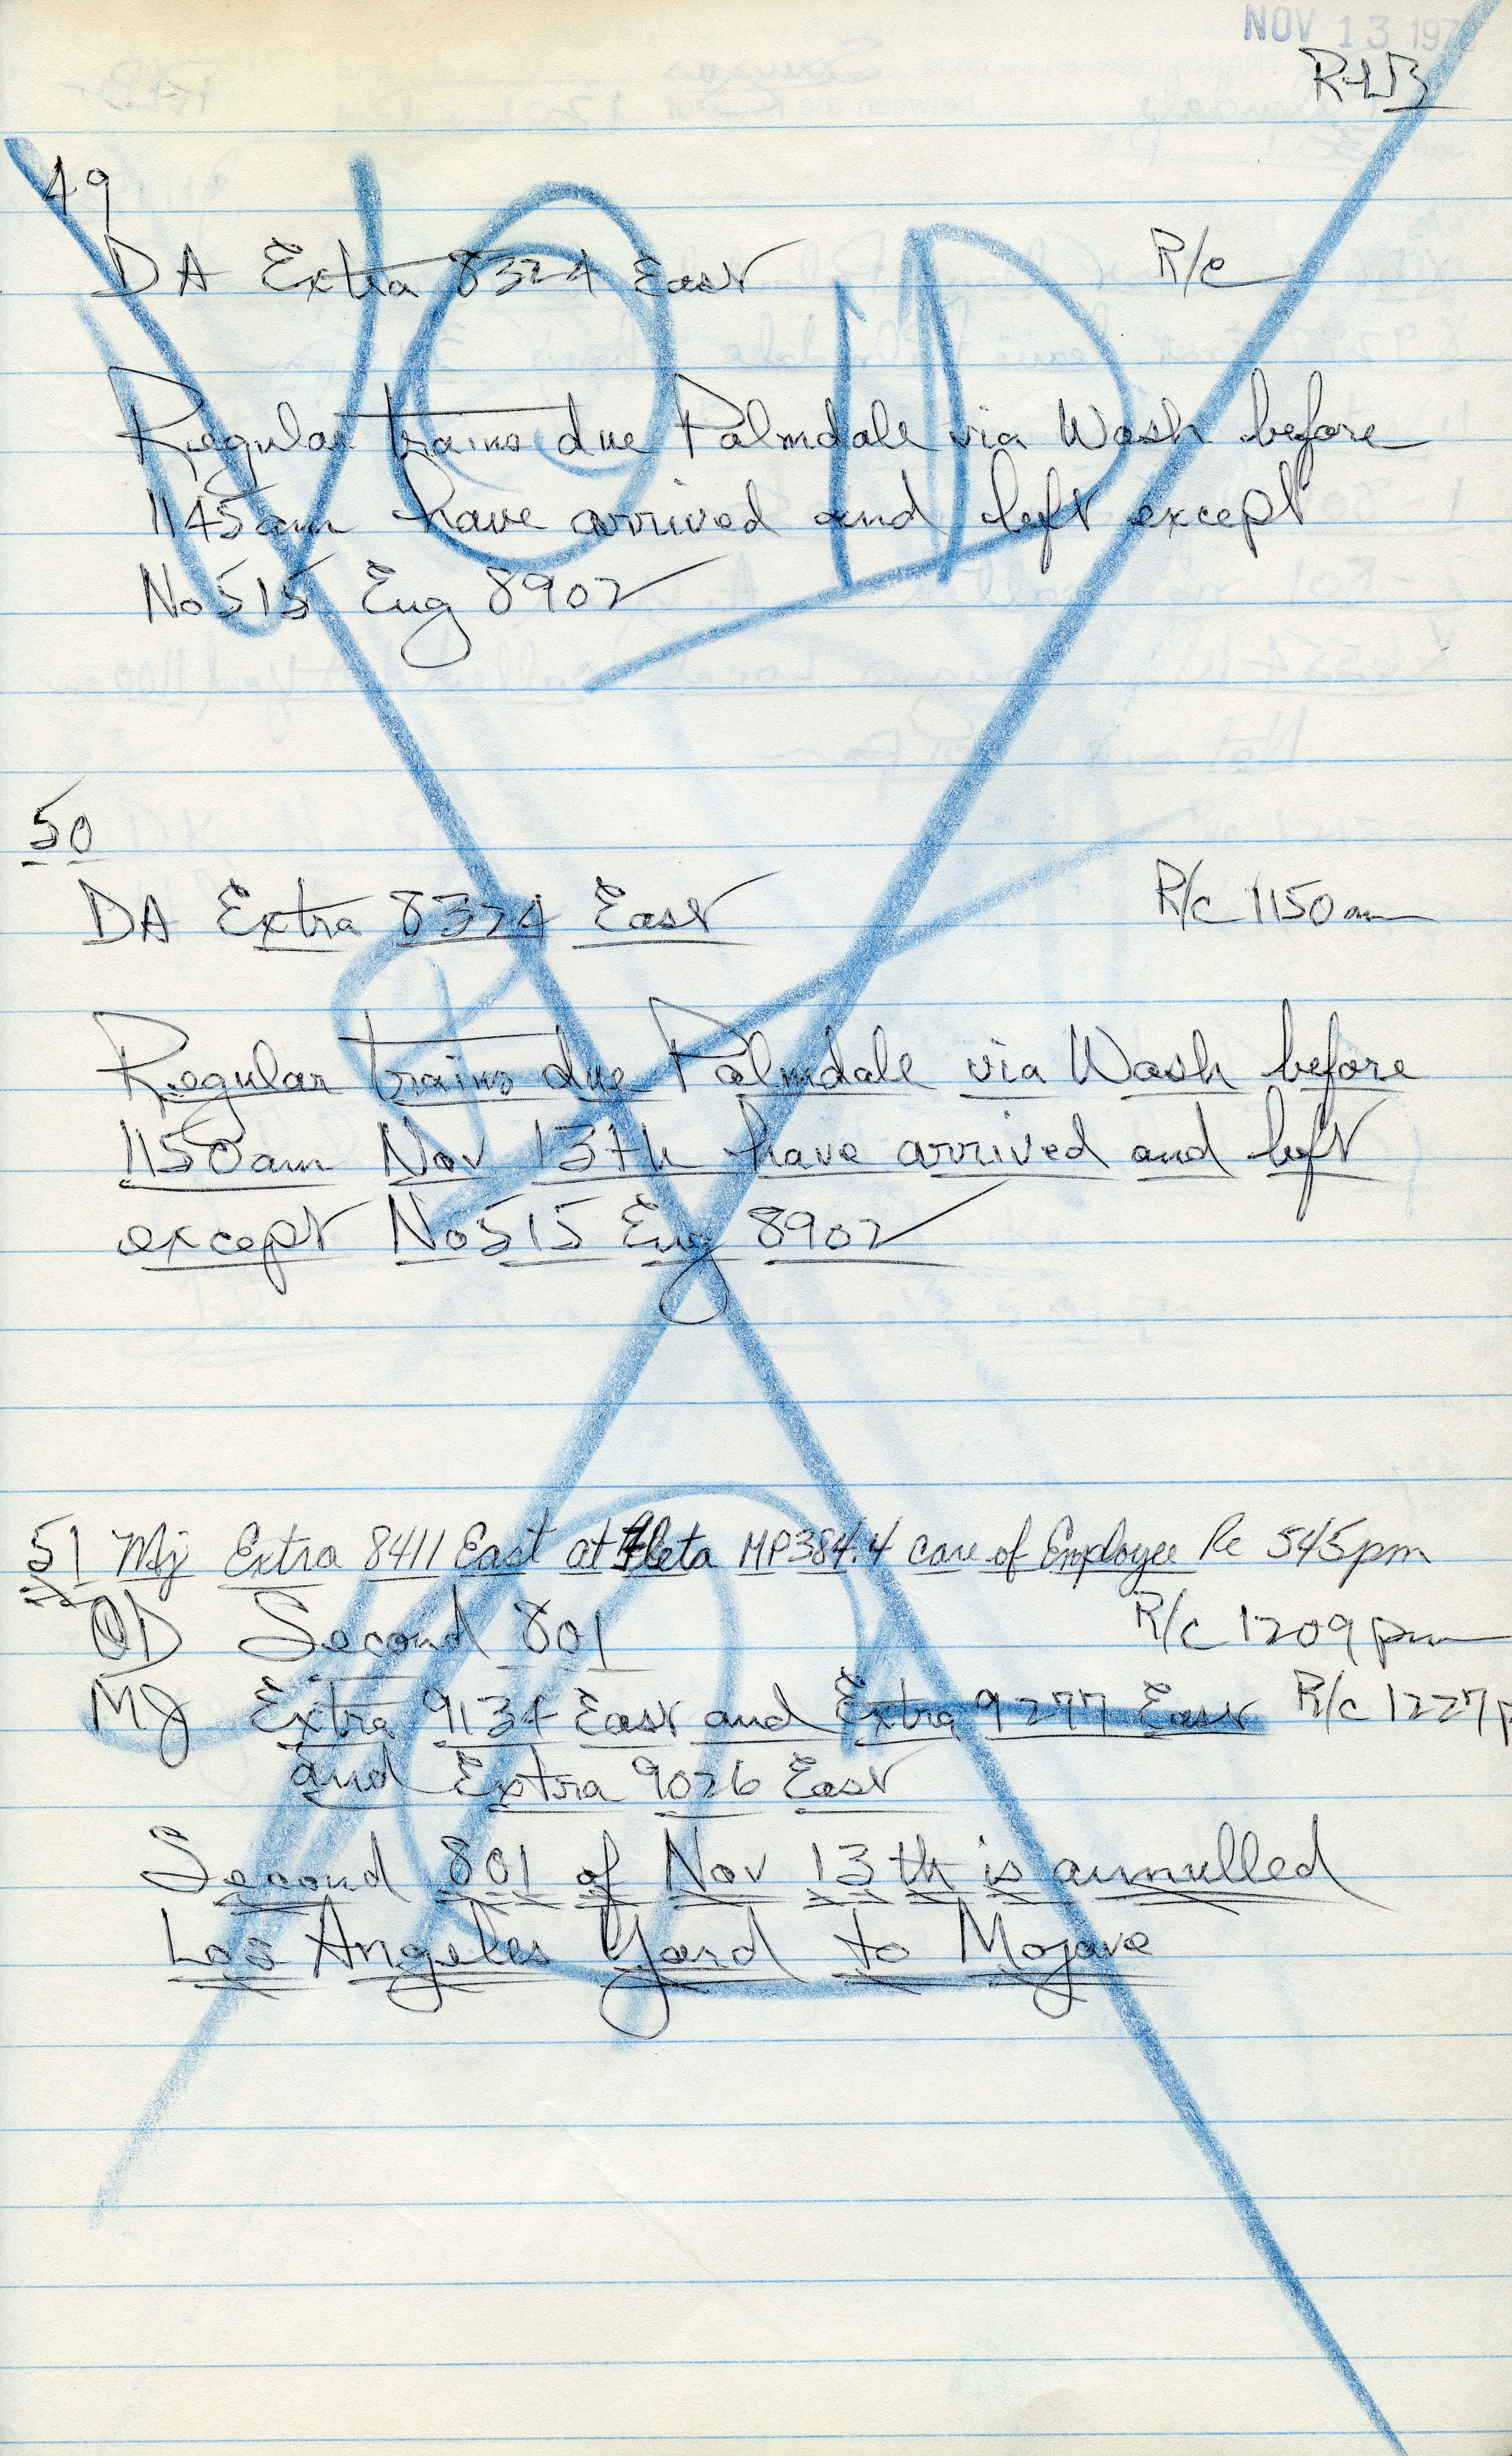 NOV 13 197
RHB
49
DA Extra 8324 East R/c
VOID
Regular trains due Palmdale via Wash before
1145am have arrived and left except
No 515 Eng 8902
50
DA Extra 8324 East R/c 1150am
Regular trains due Palmdale via Wash before
1150am Nov 13th have arrived and left
except No 515 Eng 8902
51 Mj Extra 8411 East at Fleta MP384.4 care of Employee Rc 545pm
OD Second 801 R/c 1209pm
MJ Extra 9134 East and Extra 9277 East R/c 1227p
and Extra 9026 East
Second 801 of Nov 13th is annulled
Los Angeles Yard to Mojave